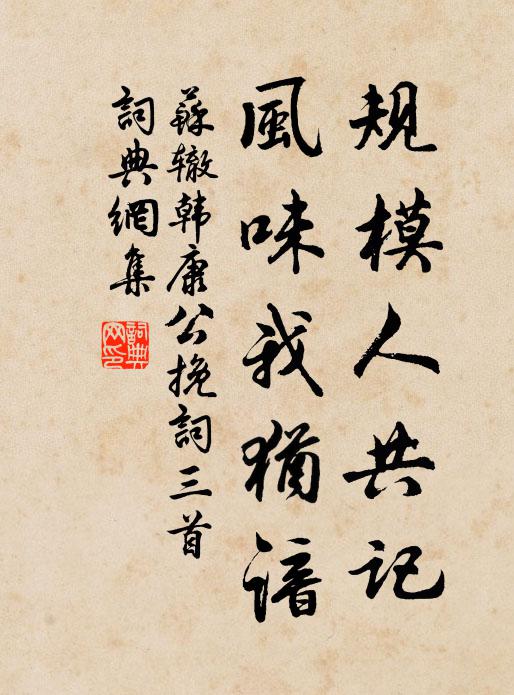 规模人共记
風味我猶谙
蘇辙韩康公挽詞三首
詞典網集
詞典网印